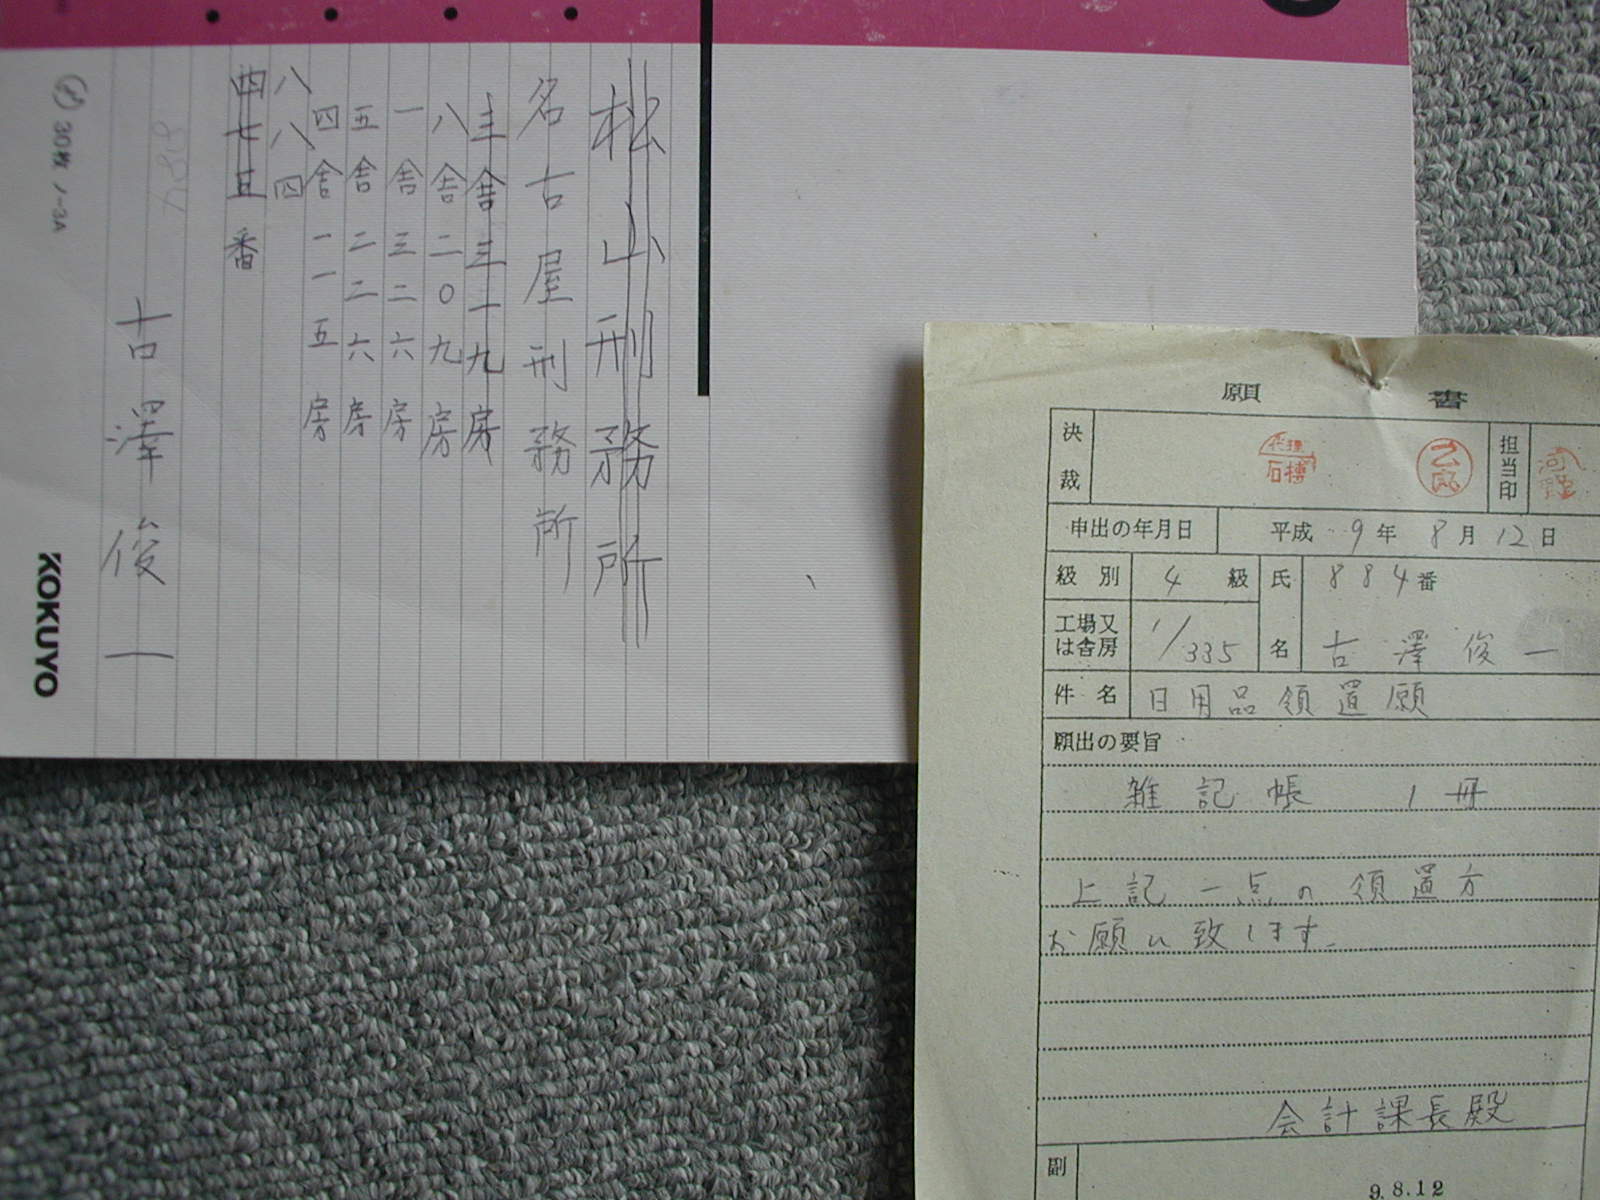 松山刑務所
名古屋刑務所
三舎三一九房
八舎二〇九房
一舎三三六房
五舎二二六房
四舎一一五房
八八四
四七五番
古澤俊一
30枚 ノ-3A
KOKUYO
願書
決裁
担当印
申出の年月日 平成 9年 8月 12日
級別 4 級 氏名 884番
工場又は舎房 1/335 古澤俊一
件名 日用品領置願
願出の要旨
雑記帳 1冊
上記一点の領置方
お願い致します。
会計課長殿
副
9.8.12